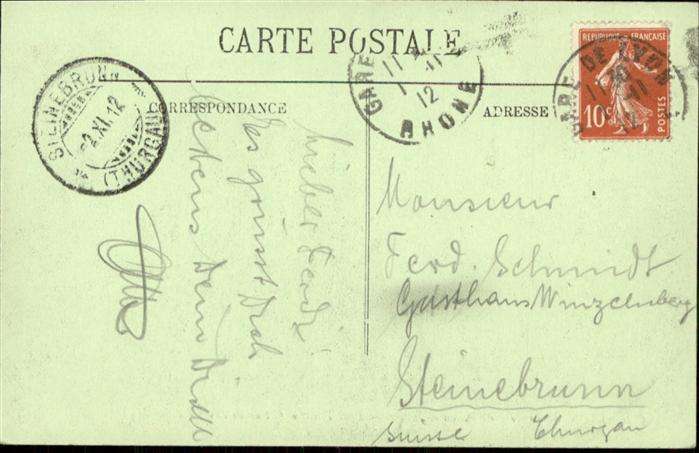 CARTE POSTALE
CORRESPONDANCE
ADRESSE
STEINEBRUNN
-2.XI.12
(THURGAU)
GARE
11
1 11
12
RHONE
REPUBLIQUE FRANÇAISE
10c
POSTES
GARE DE LYON
Lieber Ferdi
Es grüsst Dich
bestens Dein
Monsieur
Ferd. Schmidt
Gasthaus Winzelnberg
Steinebrunn
Suisse Thurgau